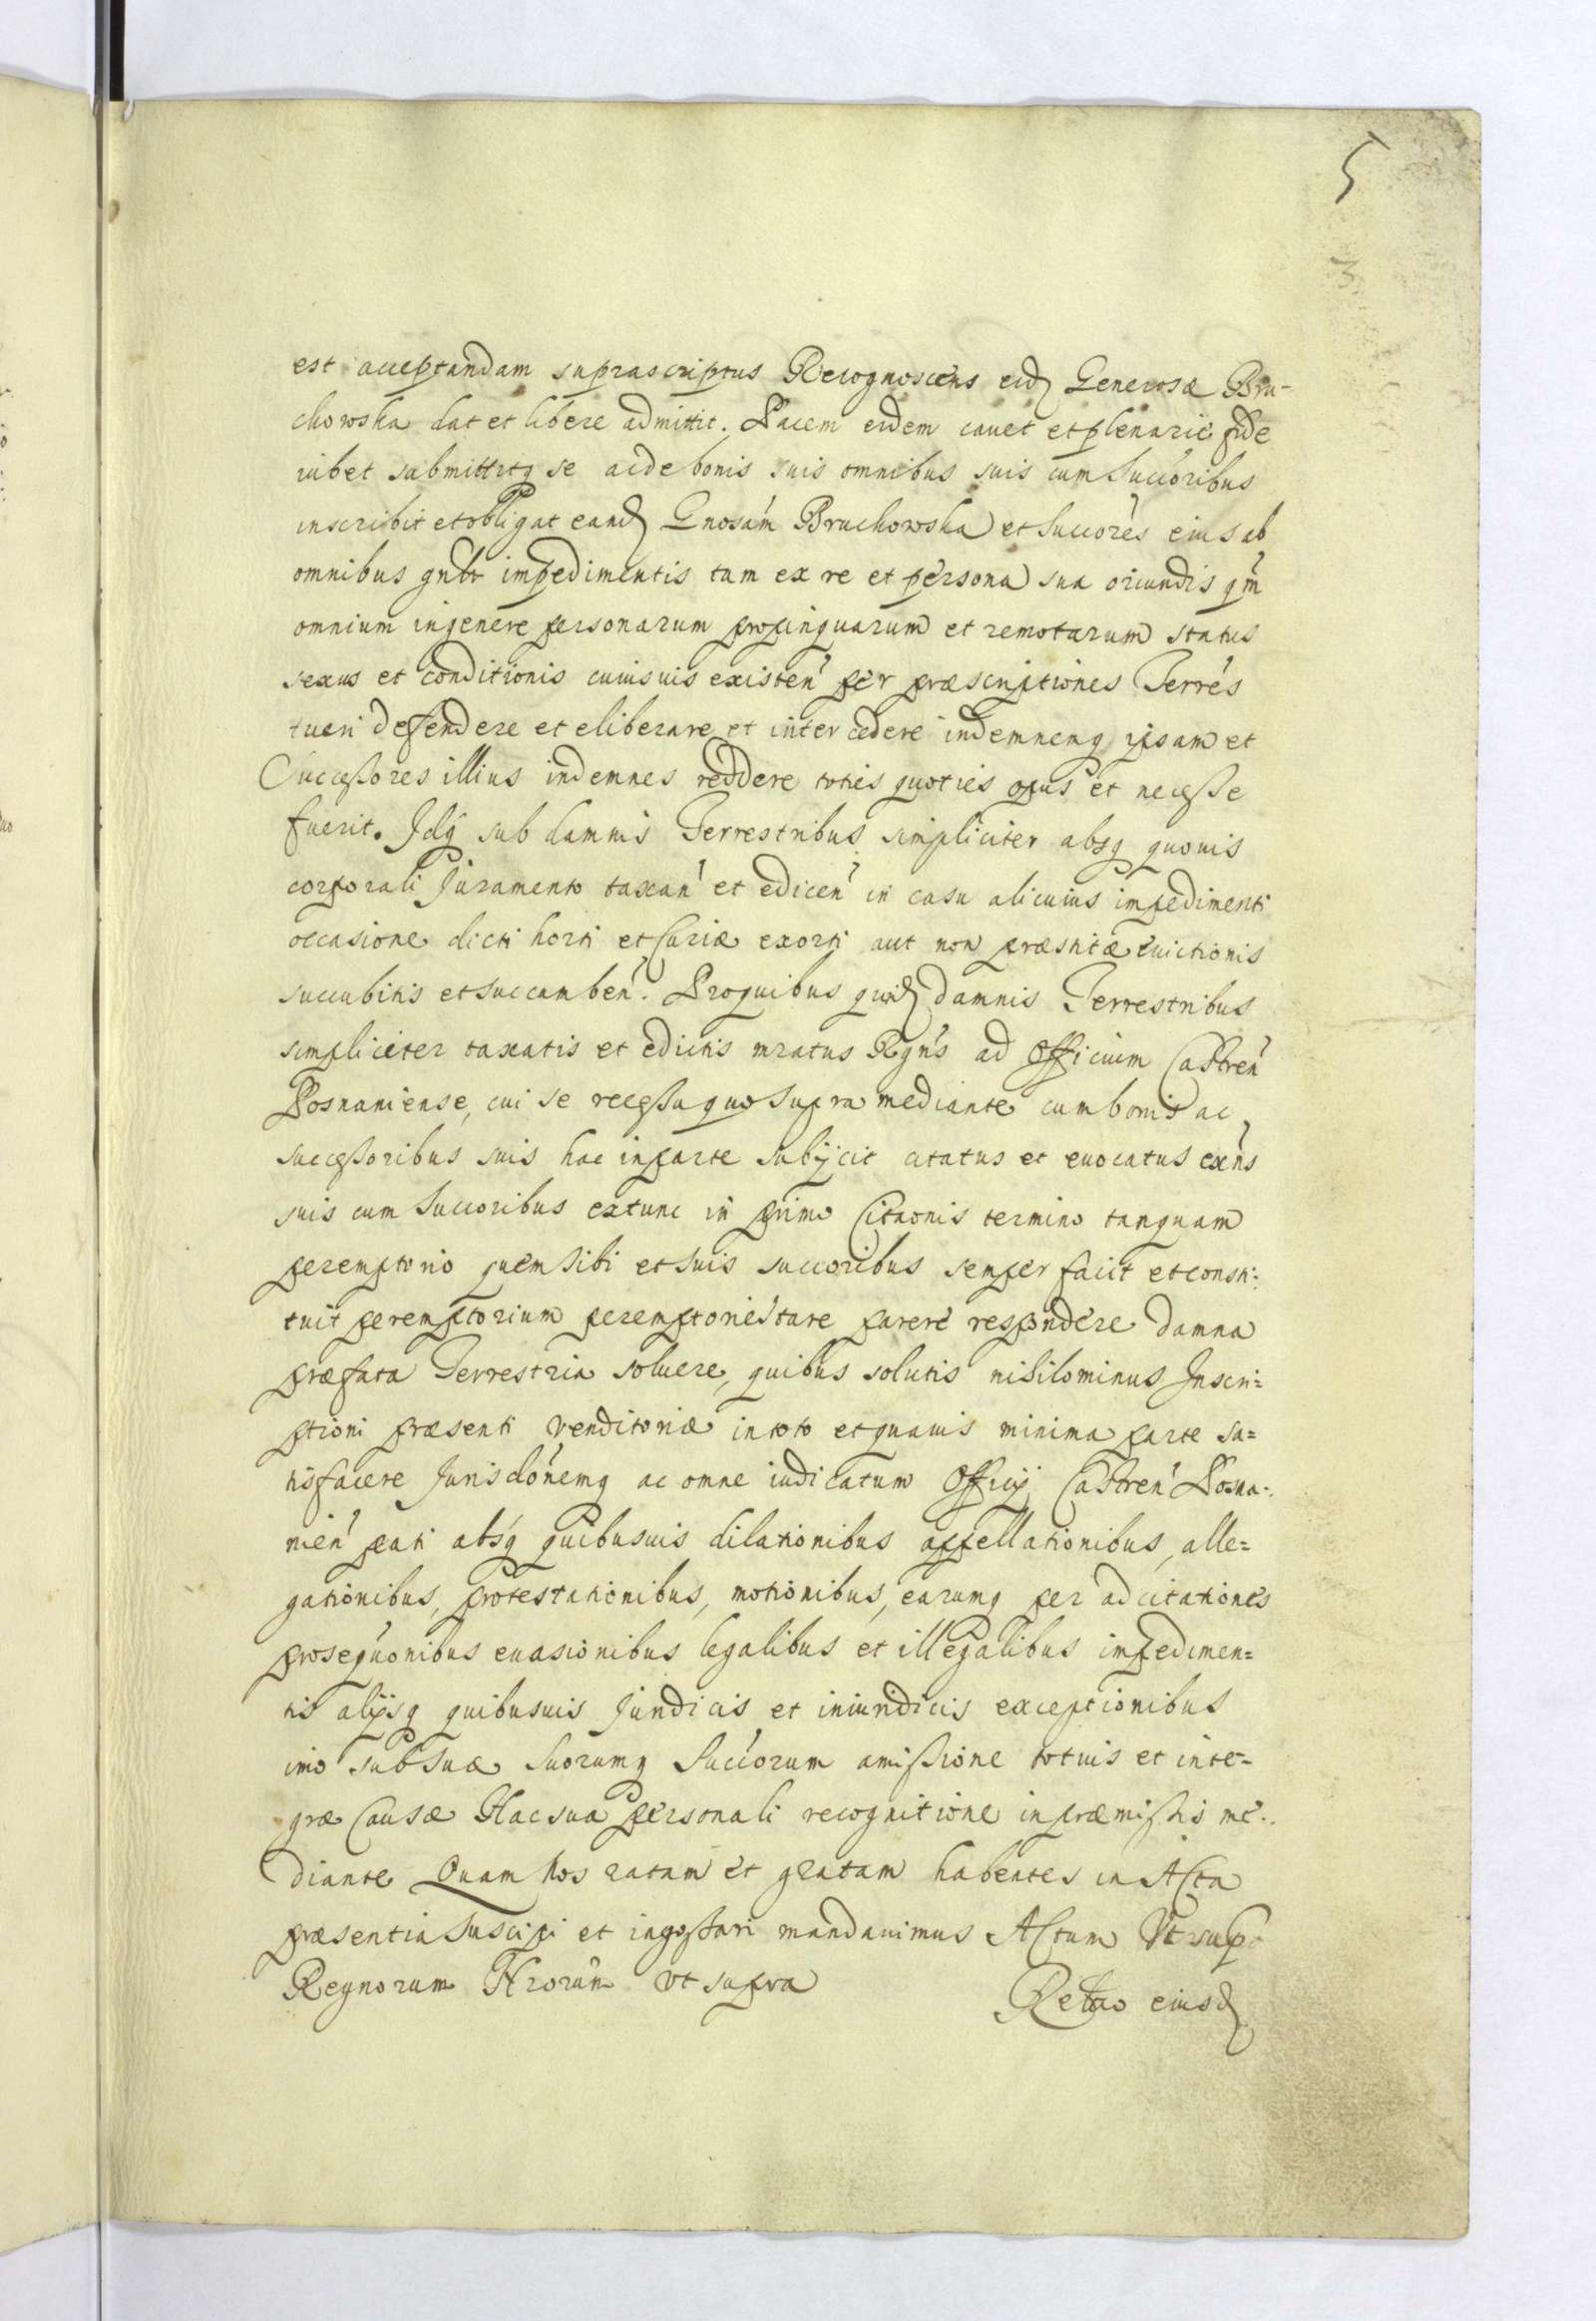 5
3
est acceptandam suprascriptus Recognoscens eid Generosæ Bru-
chowska dat et libere admittit. Pacem eidem cauet et plenarie fide
iubet submittitq se ac de bonis suis omnibus suis cum Succoribus
inscribit et obligat eand Gnosam Bruchowska et Succores eius ab
omnibus gnlr impedimentis tam ex re et persona sua oriundis qm
omnium ingenere personarum propinquarum et remotarum status
sexus et conditionis cuiusuis existen per præscriptiones Terres
tueri defendere et eliberare et intercedere indemnemq ipsam et
Successores illius indemnes reddere toties quoties opus et necesse
fuerit. Idq sub damnis Terrestribus simpliciter absq quouis
corporali Juramento taxan et edicen in casu alicuius impedimenti
occasione dicti horti et Curiæ exorti aut non præstitæ euictionis
succubitis et succumben. Pro quibus quid damnis Terrestribus
simpliciter taxatis et edictis mratus Rgns ad Officium Castren
Posnaniense, cui se recessu quo supra mediante cum bonis ac
successoribus suis hac in parte subijcit citatus et euocatus exns
suis cum Succoribus extunc in primo Citaonis termino tanquam
peremptorio quem sibi et suis succoribus semper facit et consti:
tuit peremptorium peremptorie stare parere respondere damna
præfata Terrestria soluere, quibus solutis nihilominus Inscri=
ptioni præsenti venditoriæ in toto et quauis minima parte sa=
tisfacere Jurisdonemq ac omne iudicatum Officij Castren Posna-
nien pati absq quibusuis dilationibus appellationibus, alle=
gationibus, protestationibus, motionibus, earumq per adcitationes
prosequonibus euasionibus legalibus et illegalibus impedimen=
tis alijsq quibusuis Juridicis et iniuridicis exceptionibus
imo sub suæ suorumq Succorum amissione totius et inte-
græ Causæ Hac sua personali recognitione in præmissis me-
diante Quam Nos ratam et gratam habentes in Acta
præsentia suscipi et ingossari mandauimus Actum Vt sup
Regnorum Nrorum vt supra
Relao eiusd